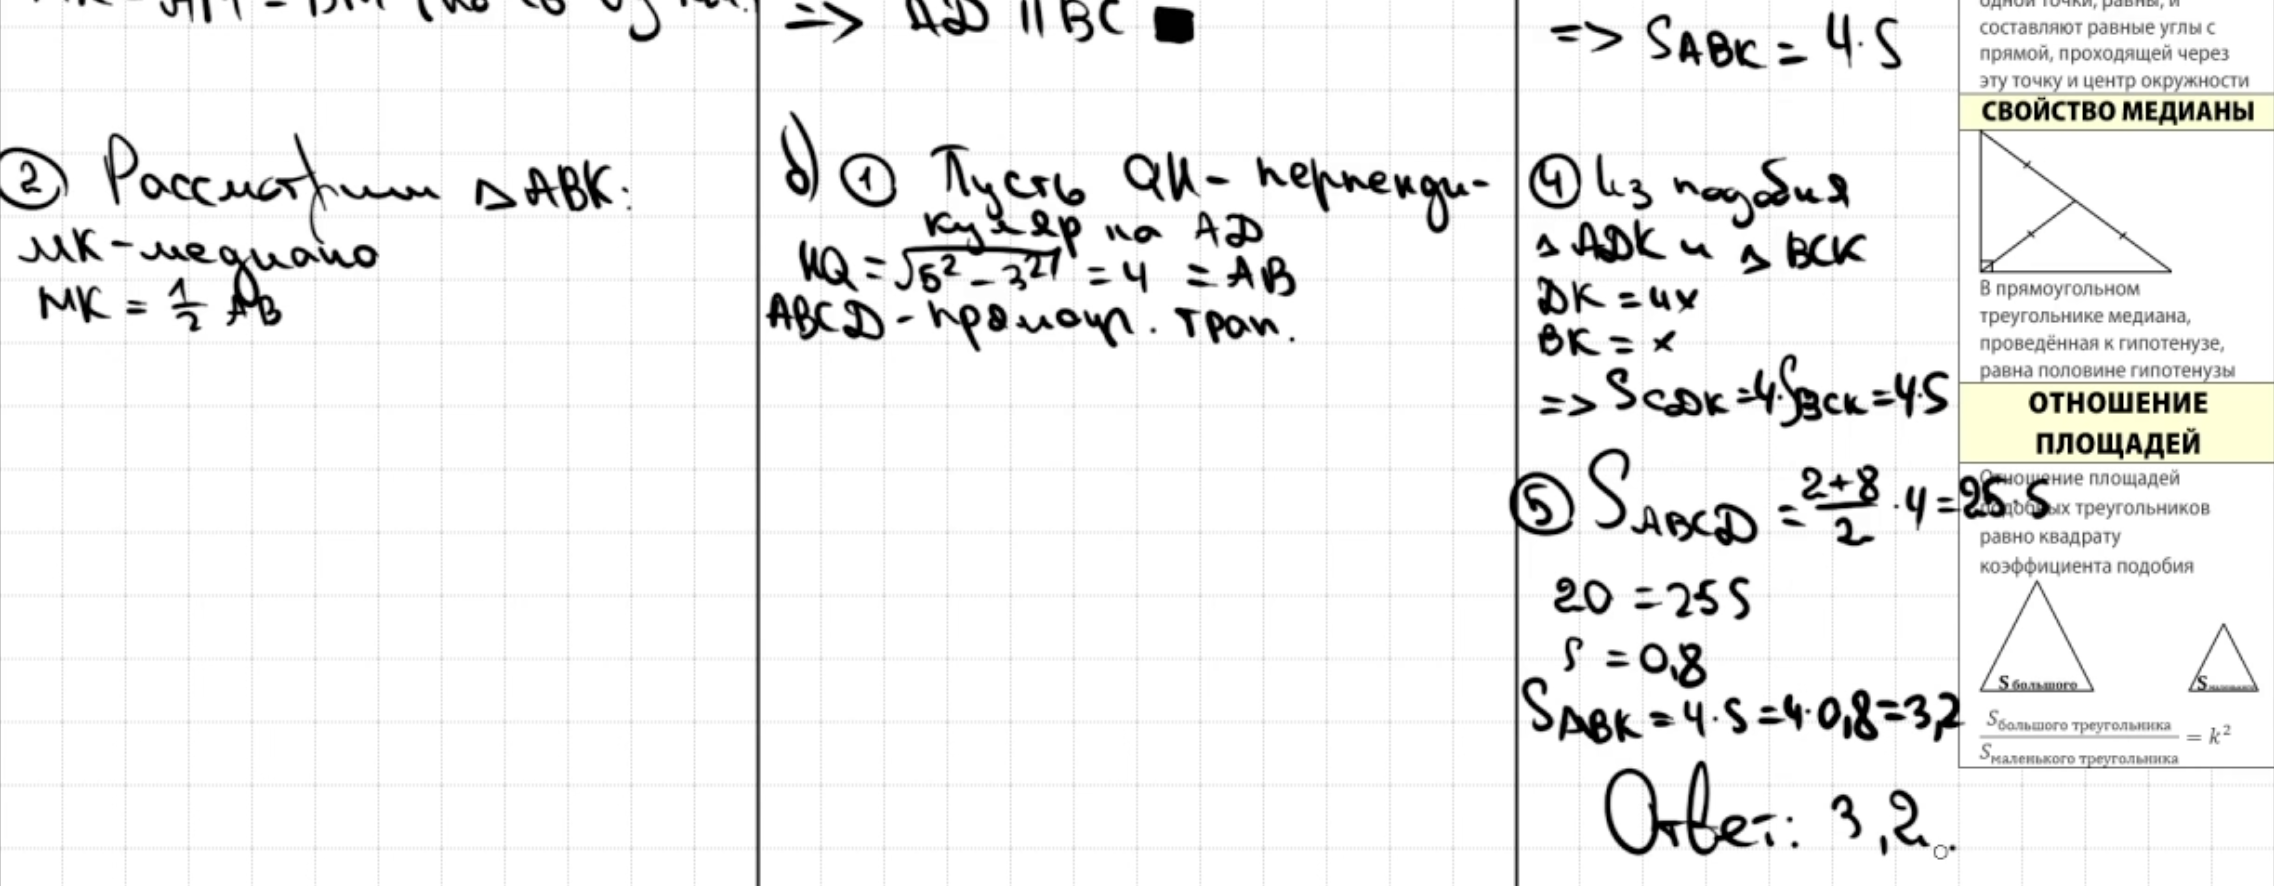 => AD || BC ■
② Рассмотрим △ABK:
MK - медиана
MK = 1/2 AB
б) ① Пусть QH - перпенди-
куляр на AD
HQ = √(5² - 3²) = 4 = AB
ABCD - прямоуг. трап.
=> S_ABK = 4·S
④ Из подобия
△ADK и △BCK
DK = 4x
BK = x
=> S_CDK = 4·S_BCK = 4·S
⑤ S_ABCD = (2+8)/2 · 4 = 25·S
20 = 25S
S = 0,8
S_ABK = 4·S = 4·0,8 = 3,2
Ответ: 3,2.
одной точки, равны, и
составляют равные углы с
прямой, проходящей через
эту точку и центр окружности
СВОЙСТВО МЕДИАНЫ
В прямоугольном
треугольнике медиана,
проведённая к гипотенузе,
равна половине гипотенузы
ОТНОШЕНИЕ
ПЛОЩАДЕЙ
Отношение площадей
подобных треугольников
равно квадрату
коэффициента подобия
S большого
S
S большого треугольника / S маленького треугольника = k²